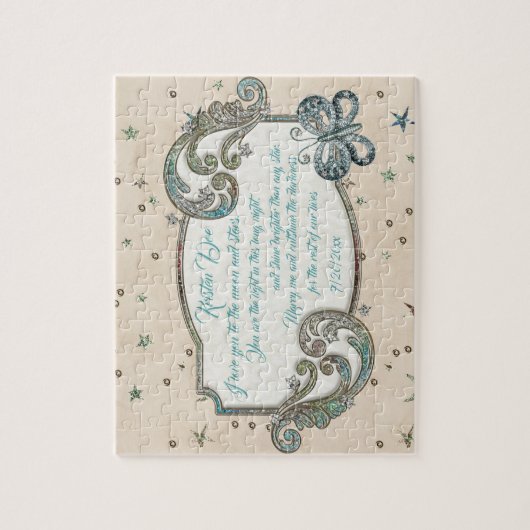 Kristen Doe
I love you to the moon and stars.
You are the light in this long night
and shine brighter than any star.
Marry me and outshine the darkness
for the rest of our lives
9/26/20xx